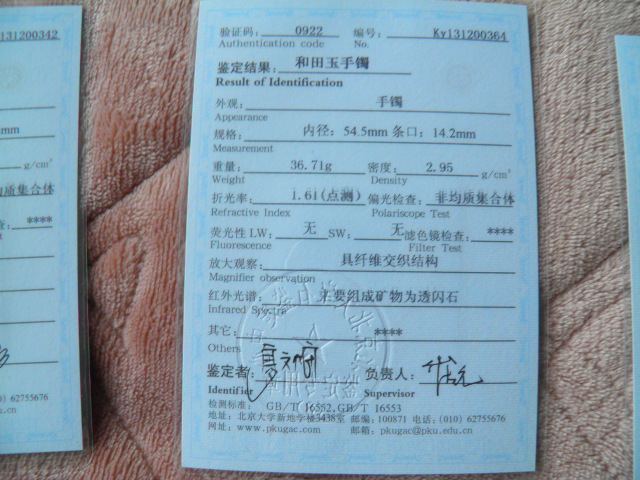 131200342
mm
g/cm³
匀质集合体
查: ****
) 62755676
u.cn
验证码: 0922 编号: Ky131200364
Authentication code No.
鉴定结果: 和田玉手镯
Result of Identification
外观: 手镯
Appearance
规格: 内径: 54.5mm 条口: 14.2mm
Measurement
重量: 36.71g 密度: 2.95 g/cm³
Weight Density
折光率: 1.61(点测) 偏光检查: 非均质集合体
Refractive Index Polariscope Test
荧光性 LW: 无 SW: 无 滤色镜检查: ****
Fluorescence Filter Test
放大观察: 具纤维交织结构
Magnifier observation
红外光谱: 主要组成矿物为透闪石
Infrared Spectra
其它: ****
Others
鉴定者: 负责人:
Identifier Supervisor
检测标准: GB/T 16552,GB/T 16553
地址: 北京大学新地学楼3438室 邮编: 100871 电话: (010) 62755676
网址: www.pkugac.com 邮箱: pkugac@pku.edu.cn